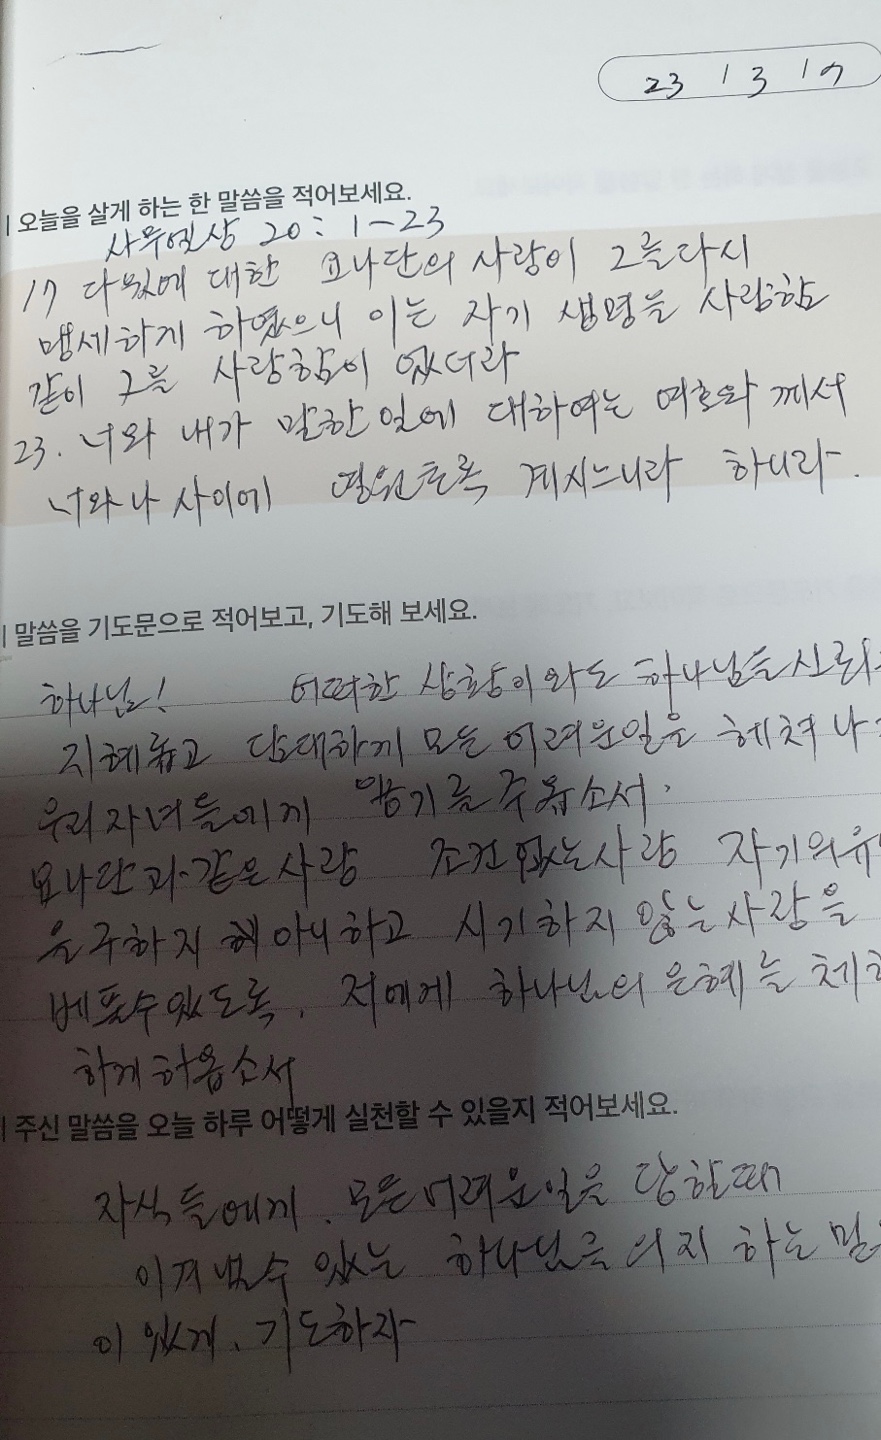 23 / 3 / 17
오늘을 살게 하는 한 말씀을 적어보세요.
사무엘상 20 : 1-23
17 다윗에 대한 요나단의 사랑이 그를 다시
맹세하게 하였으니 이는 자기 생명을 사랑함
같이 그를 사랑함이 었더라
23. 너와 내가 말한 일에 대하여는 여호와 께서
너와 나 사이에 영원토록 계시느니라 하니라.
말씀을 기도문으로 적어보고, 기도해 보세요.
하나님! 어떠한 상황이 와도 하나님을 신뢰
지혜롭고 담대하게 모든 어려운일을 헤쳐 나
우리 자녀들에게 용기를 주옵소서.
요나단과 같은 사랑 조건 없는 사랑 자기의 유
을 구하지 아니하고 시기하지 않는 사랑을
베풀수 있도록. 저에게 하나님의 은혜를 체
하게 하옵소서
주신 말씀을 오늘 하루 어떻게 실천할 수 있을지 적어보세요.
자식들에게. 모든 어려운 일을 당할때
이겨 낼수 있는 하나님을 의지 하는 믿
이 있게. 기도하자